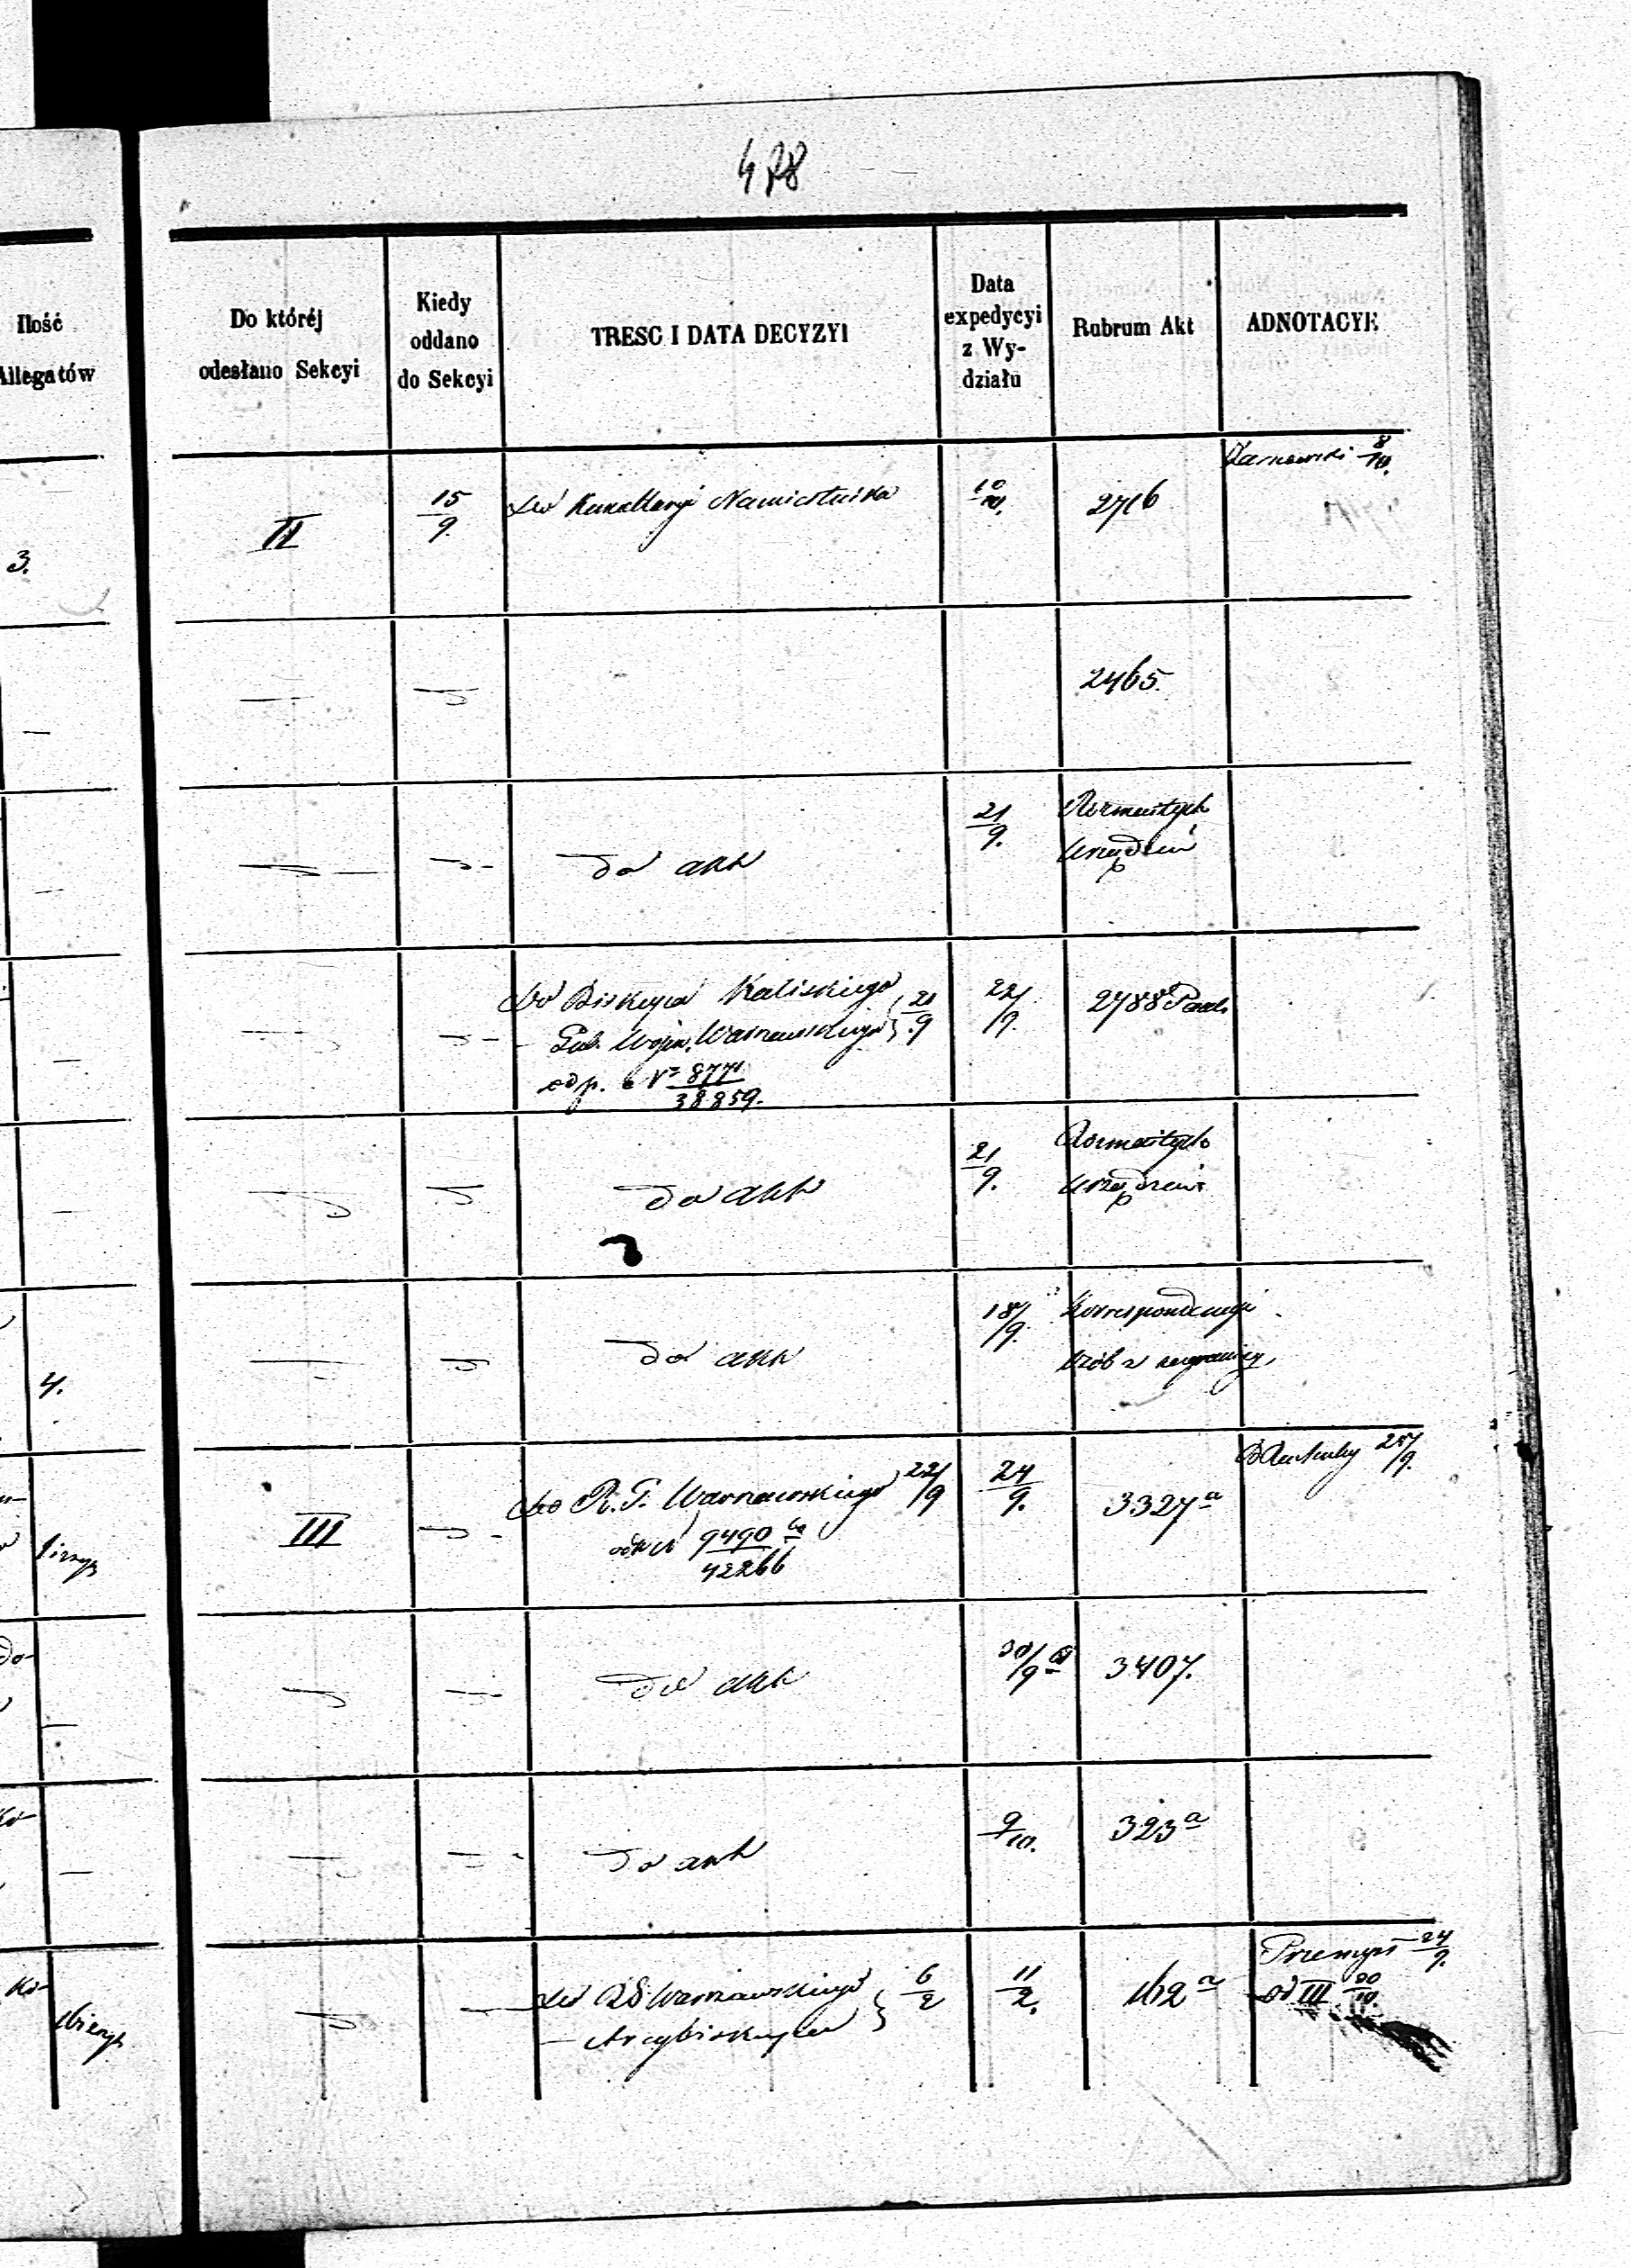 478
Ilość
Allegatów
Do któréj
odesłano Sekcyi
Kiedy
oddano
do Sekcyi
TRESC I DATA DECYZYI
Data
expedycyi
z Wy-
działu
Rubrum Akt
ADNOTACYE
8/10.
3.
II
15/9.
do Kancellaryi Namiestnika
10/10.
2716
2465.
do akt
21/9.
Rozmaitych
Urządzeń
do Biskupa Kaliskiego
Gub. Wojen. Warszawskiego } 21/9
odp. 8771/38859.
22/9.
2788
do akt
21/9.
Rozmaitych
Urządzeń
4.
do akt
18/9.
Korrespondencyi
osób z zagranicy
III
do R. G. Warszawskiego 22/9
9490/42266
24/9.
3327a
25/9.
do akt
30/9
3407.
do akt
9/10.
323a
do R G Warszawskiego
— Arcybiskupa } 6/2
11/2.
162a
24/9.
od III 20/10.